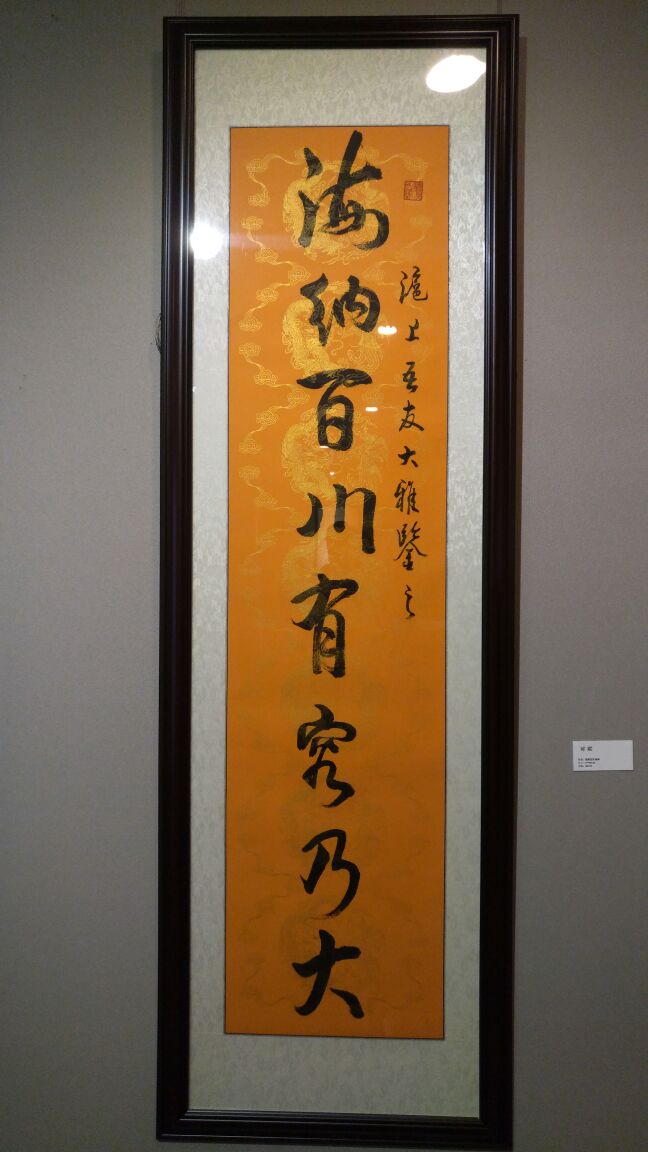 滬上吾友大雅鑒之
海納百川有容乃大